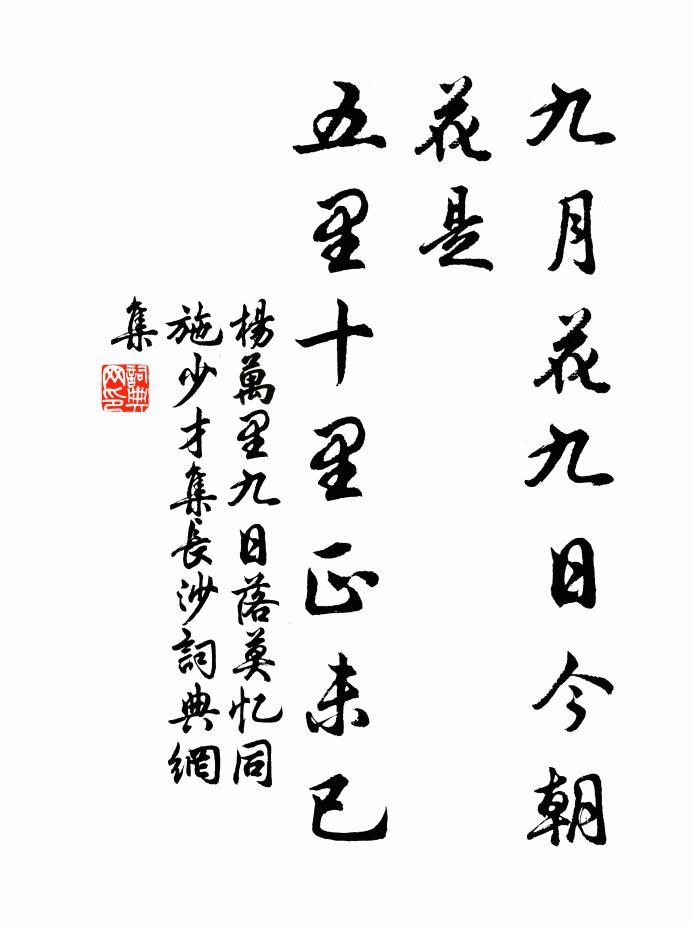 九月花九日今朝
花是
五里十里正未已
楊萬里九日落莫忆同
施少才集長沙詞典網
集
詞典
网印